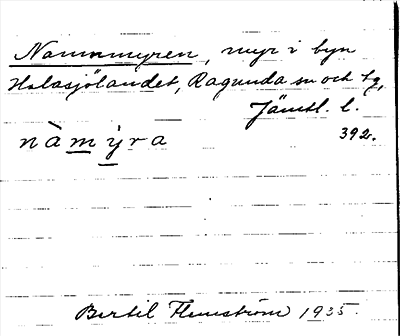 Nammmyren, myr i byn
Holasjölandet, Ragunda sn och tg,
Jämtl. l.
392.
nàmýra
Bertil Flemström 1935.